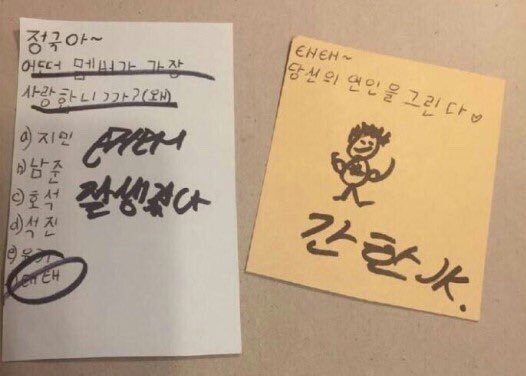 정국아~
어떠 멤버가 가장
사랑합니까?(왜)
a) 지민
b) 남준
c) 호석
d) 석진
e)
태태
잘생겼다
태태~
당신의 연인을 그린다♡
간한 JK.